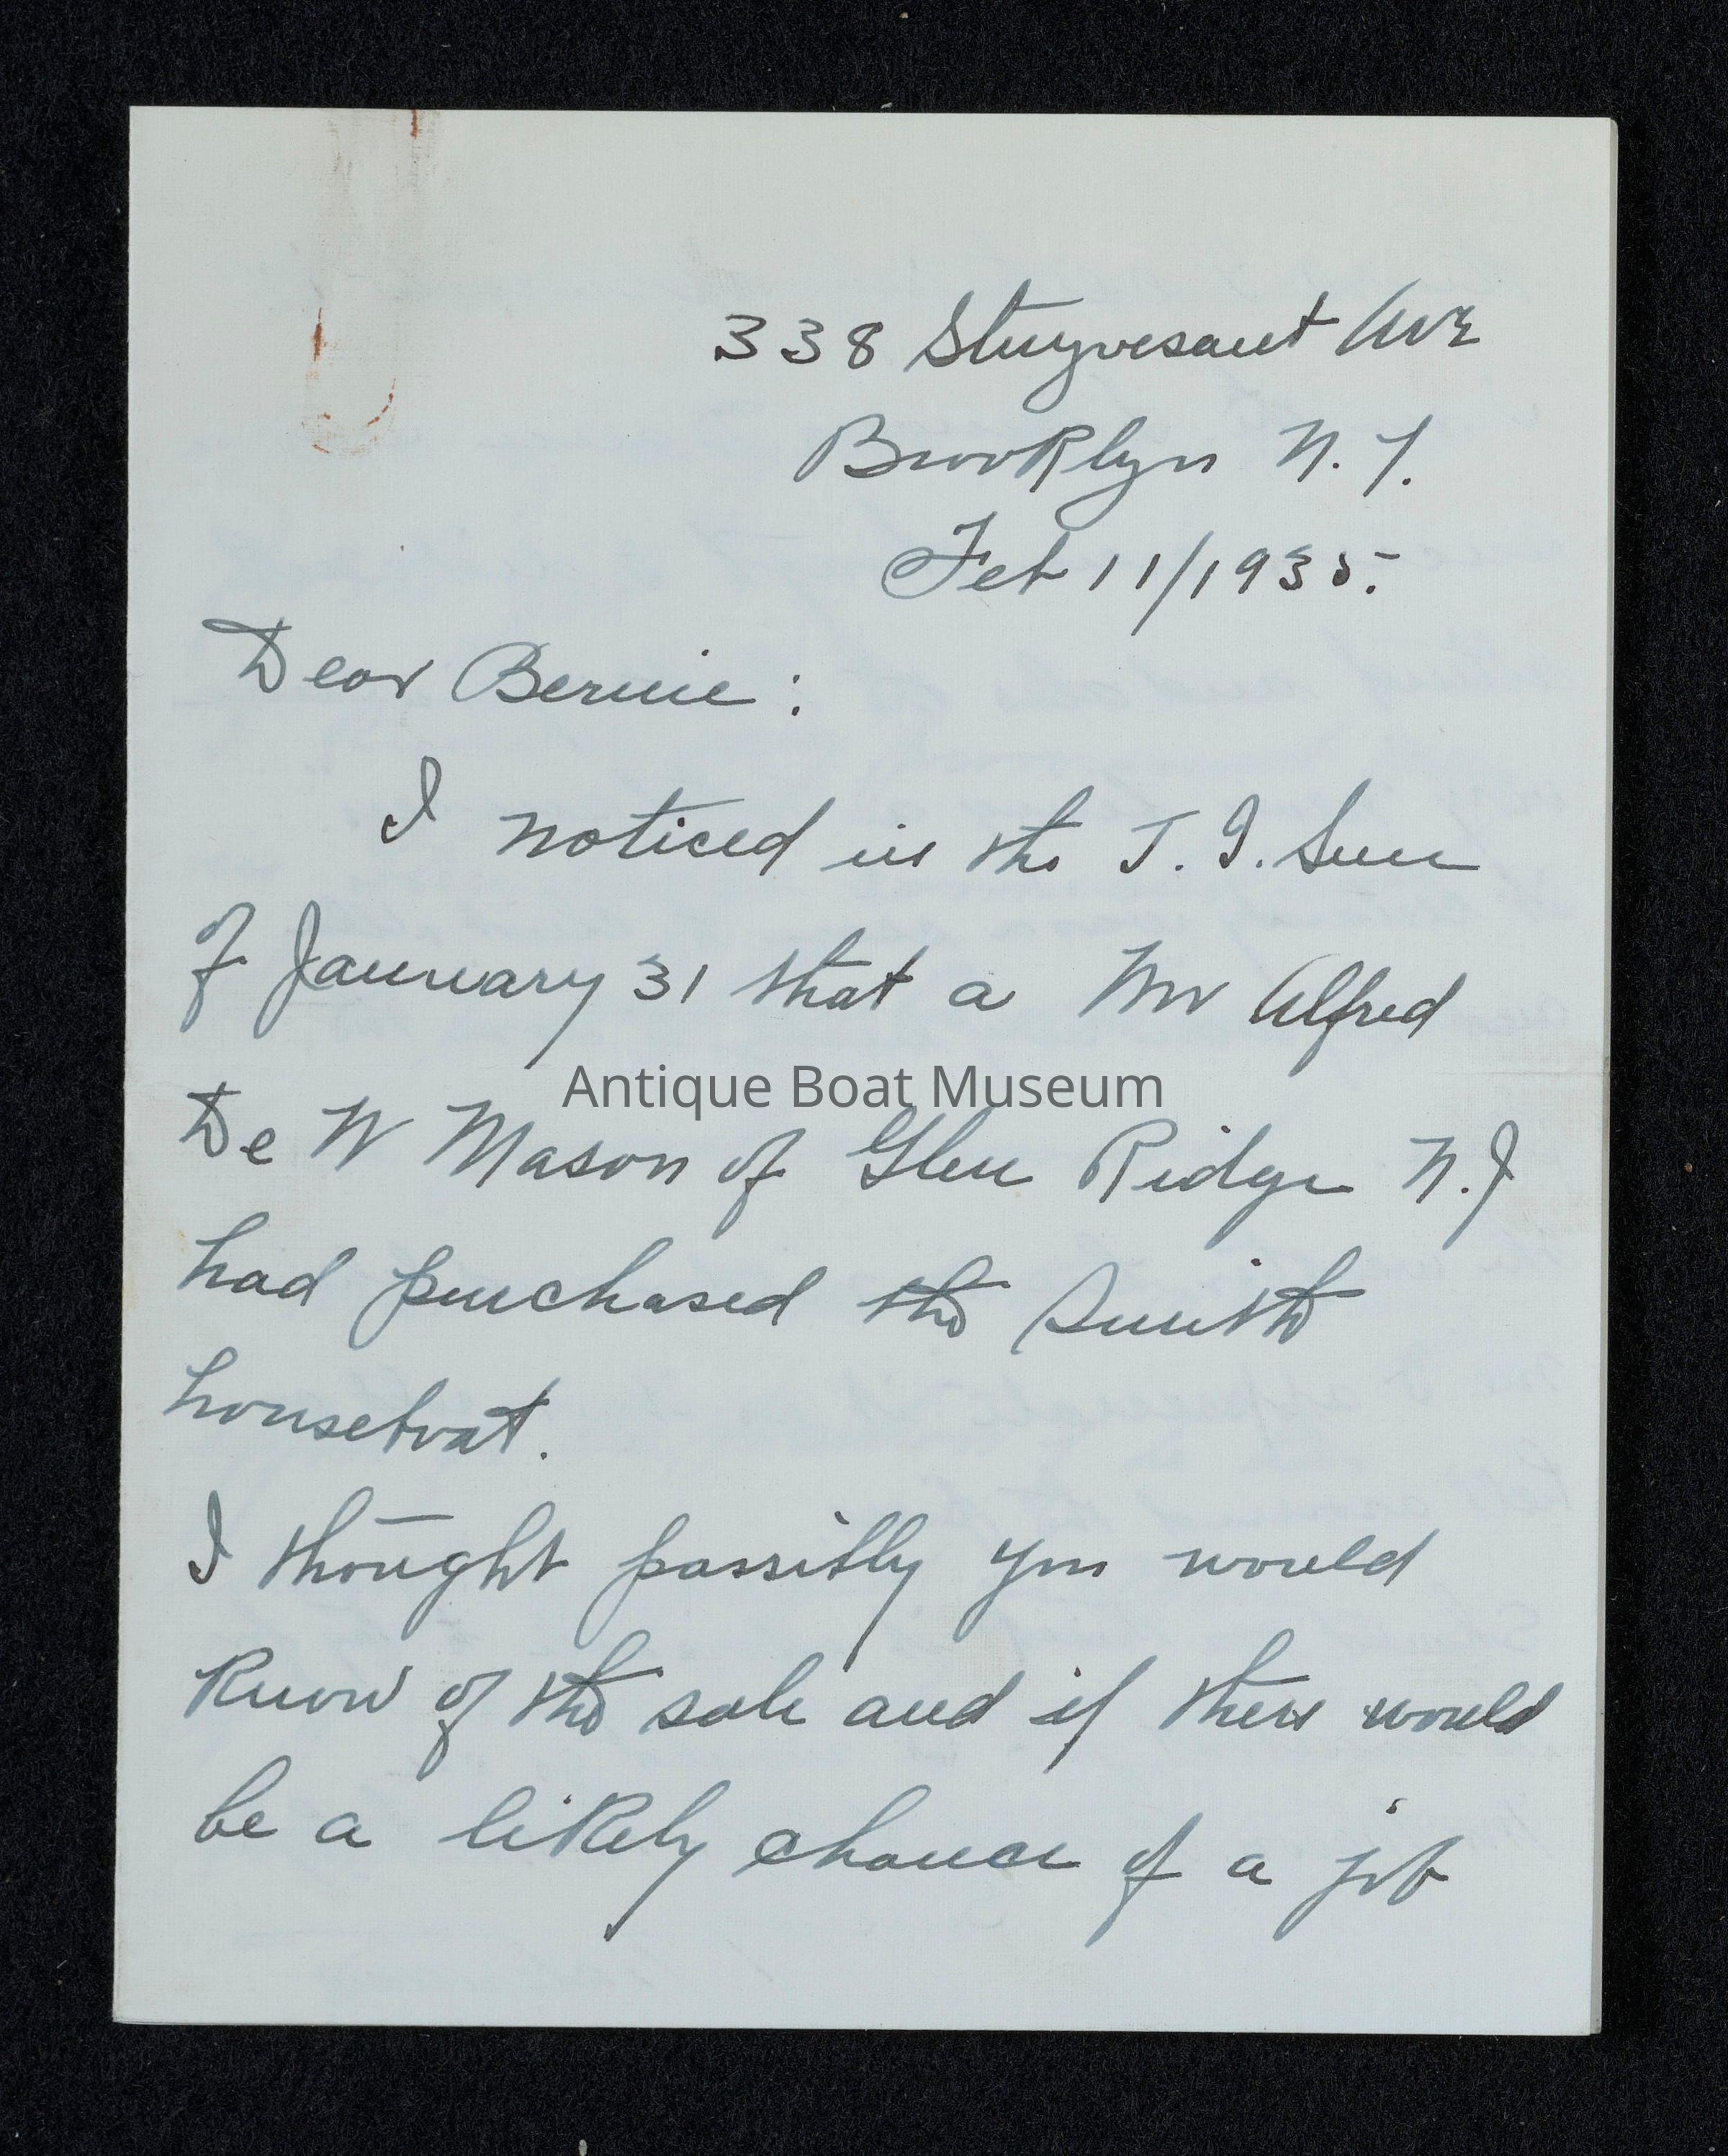 338 Stuyvesant Ave
Brooklyn N.Y.
Feb 11/1935.
Dear Bernie:
I noticed in the T.I. Sun
of January 31 that a Mr Alfred
Antique Boat Museum
De W Mason of Glen Ridge N.J
had purchased the Smith
houseboat.
I thought possibly you would
know of the sale and if there would
be a likely chance of a job